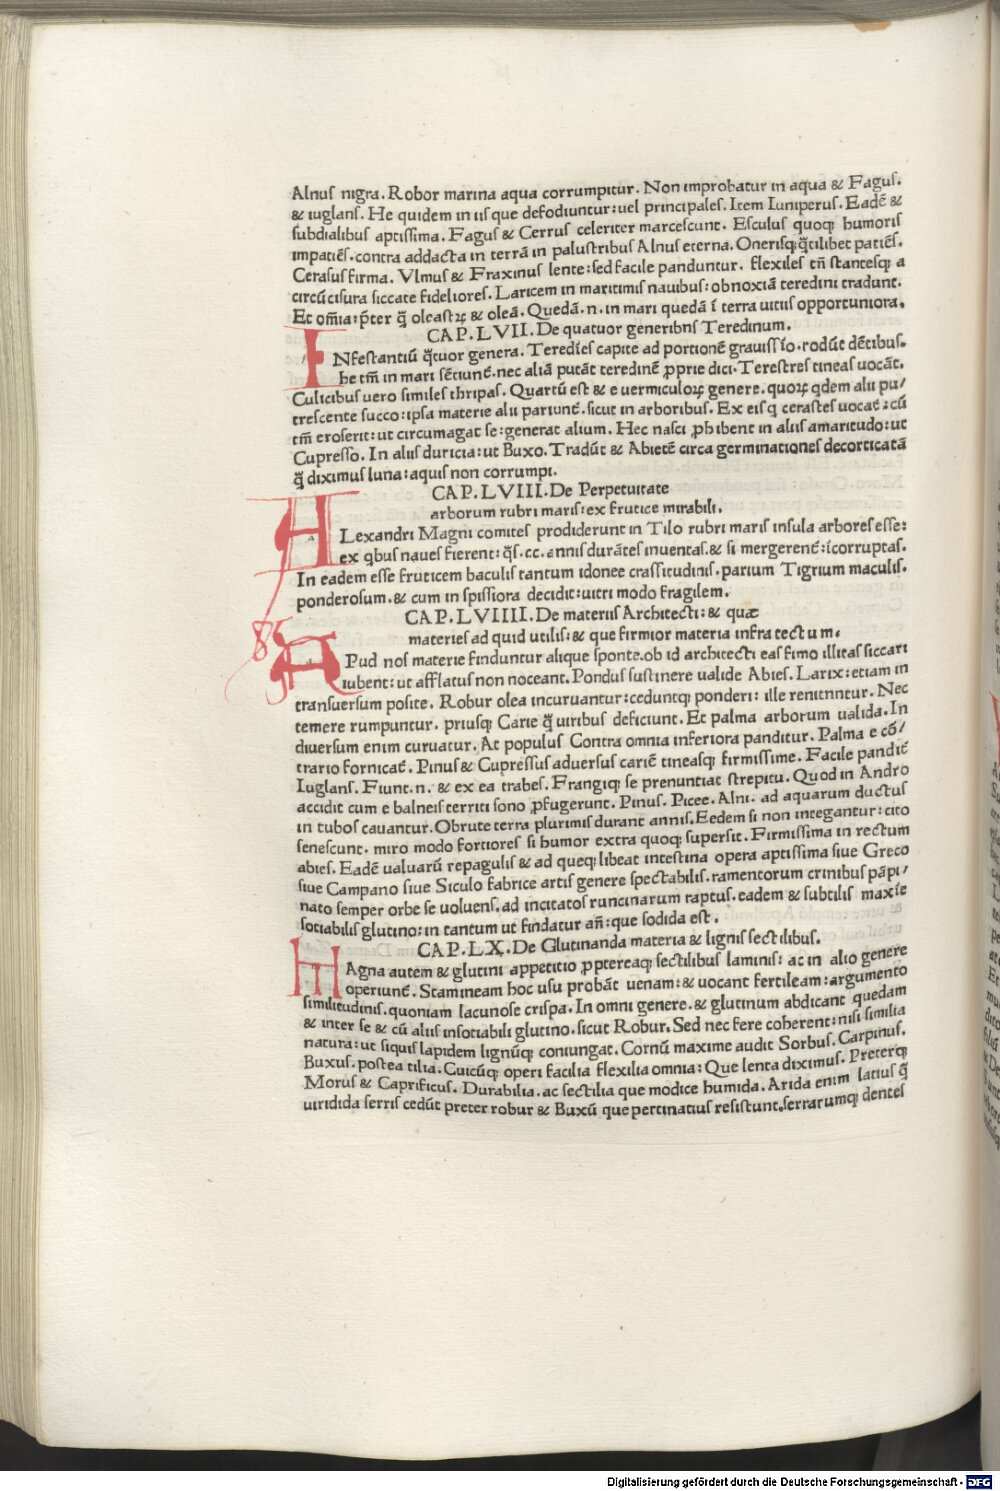 Alnus nigra. Robor marina aqua corrumpitur. Non improbatur in aqua & Fagus.
& iuglans. He quidem in iis que defodiuntur: uel principales. Item Iuniperus. Eadē &
subdialibus aptissima. Fagus & Cerrus celeriter marcescunt. Esculus quoqꝫ humoris
impatiēs. contra addacta in terrā in palustribus Alnus eterna. Onerisqꝫ q̄tilibet patiēs.
Cerasus firma. Vlmus & Fraxinus lente: sed facile panduntur. flexiles tñ stantesqꝫ a
circūcisura siccate fideliores. Laricem in maritimis nauibus: obnoxiā teredini tradunt.
Et om̄ia: p̄ter q̄ oleastꝝ & oleā. Quedā. n. in mari quedā ī terra uitiis opportuniora.
CAP. LVII. De quatuor generibns Teredinum.
INfestantiū q̄tuor genera. Teredīes capite ad portionē grauissīo. rodūt dētibus.
he tm̄ in mari sētiunt̄. nec aliā putāt teredinē ꝓprie dici. Terestres tineas uocāt.
Culicibus uero similes thripas. Quartū est & e uermiculoꝝ genere. quoꝝ qdem alii pu/
trescente succo: ipsa materie alii pariunt̄. sicut in arboribus. Ex eisq cerastes uocat̄: cū
tm̄ eroserit: ut circumagat se: generat alium. Hec nasci ꝓhibent in aliis amaritudo: ut
Cupresso. In aliis duricia: ut Buxo. Tradūt & Abietē circa germinationes decorticatā
q̄ diximus luna: aquis non corrumpi.
CAP. LVIII. De Perpetuitate
arborum rubri maris: ex frutice mirabili.
ALexandri Magni comites prodiderunt in Tilo rubri maris insula arbores esse:
ex qbus naues fierent: q̄s. cc. annis durātes inuentas. & si mergerent̄: īcorruptas.
In eadem esse fruticem baculis tantum idonee crassitudinis. parium Tigrium maculis.
ponderosum. & cum in spissiora decidit: uitri modo fragilem.
CAP. LVIIII. De materiis Architecti: & quæ
materies ad quid utilis: & que firmior materia infra tectum.
APud nos materie finduntur alique sponte. ob id architecti eas fimo illitas siccari
iubent: ut afflatus non noceant. Pondus sustinere ualide Abies. Larix: etiam in
transuersum posite. Robur olea incuruantur: ceduntqꝫ ponderi: ille renitnntur. Nec
temere rumpuntur. priusqꝫ Carie q̄ uiribus deficiunt. Et palma arborum ualida. In
diuersum enim curuatur. At populus Contra omnia inferiora panditur. Palma e cō/
trario fornicat̄. Pinus & Cupressus aduersus cariē tineasqꝫ firmissime. Facile pandit̄
Iuglans. Fiunt. n. & ex ea trabes. Frangiqꝫ se prenuntiat strepitu. Quod in Andro
accidit cum e balneis territi sono ꝓfugerunt. Pinus. Picee. Alni. ad aquarum ductus
in tubos cauantur. Obrute terra plurimis durant annis. Eedem si non integantur: cito
senescunt. miro modo fortiores si humor extra quoqꝫ supersit. Firmissima in rectum
abies. Eadē ualuarū repagulis & ad queqꝫ libeat intestina opera aptissima siue Greco
siue Campano siue Siculo fabrice artis genere spectabilis. ramentorum crinibus pāpi/
nato semper orbe se uoluens. ad incitatos runcinarum raptus. eadem & subtilis maxīe
sociabilis glutino: in tantum ut findatur añ: que sodida est.
CAP. LX. De Glutinanda materia & lignis sectilibus.
MAgna autem & glutini appetitio ꝓptereaqꝫ sectilibus laminis: ac in alio genere
operiunt̄. Stamineam hoc usu probāt uenam: & uocant fertileam: argumento
similitudinis. quoniam lacunose crispa. In omni genere. & glutinum abdicant quedam
& inter se & cū aliis insociabili glutino. sicut Robur. Sed nec fere coherent: nisi similia
natura: ut siquis lapidem lignūqꝫ coniungat. Cornū maxime audit Sorbus. Carpinus.
Buxus. postea tilia. Cuicūqꝫ operi facilia flexilia omnia: Que lenta diximus. Preterqꝫ
Morus & Caprificus. Durabilia. ac sectilia que modice humida. Arida enim latius q̄
uiridida serris cedūt preter robur & Buxū que pertinatius resistunt. serrarumqꝫ dentes
Digitalisierung gefördert durch die Deutsche Forschungsgemeinschaft - DFG